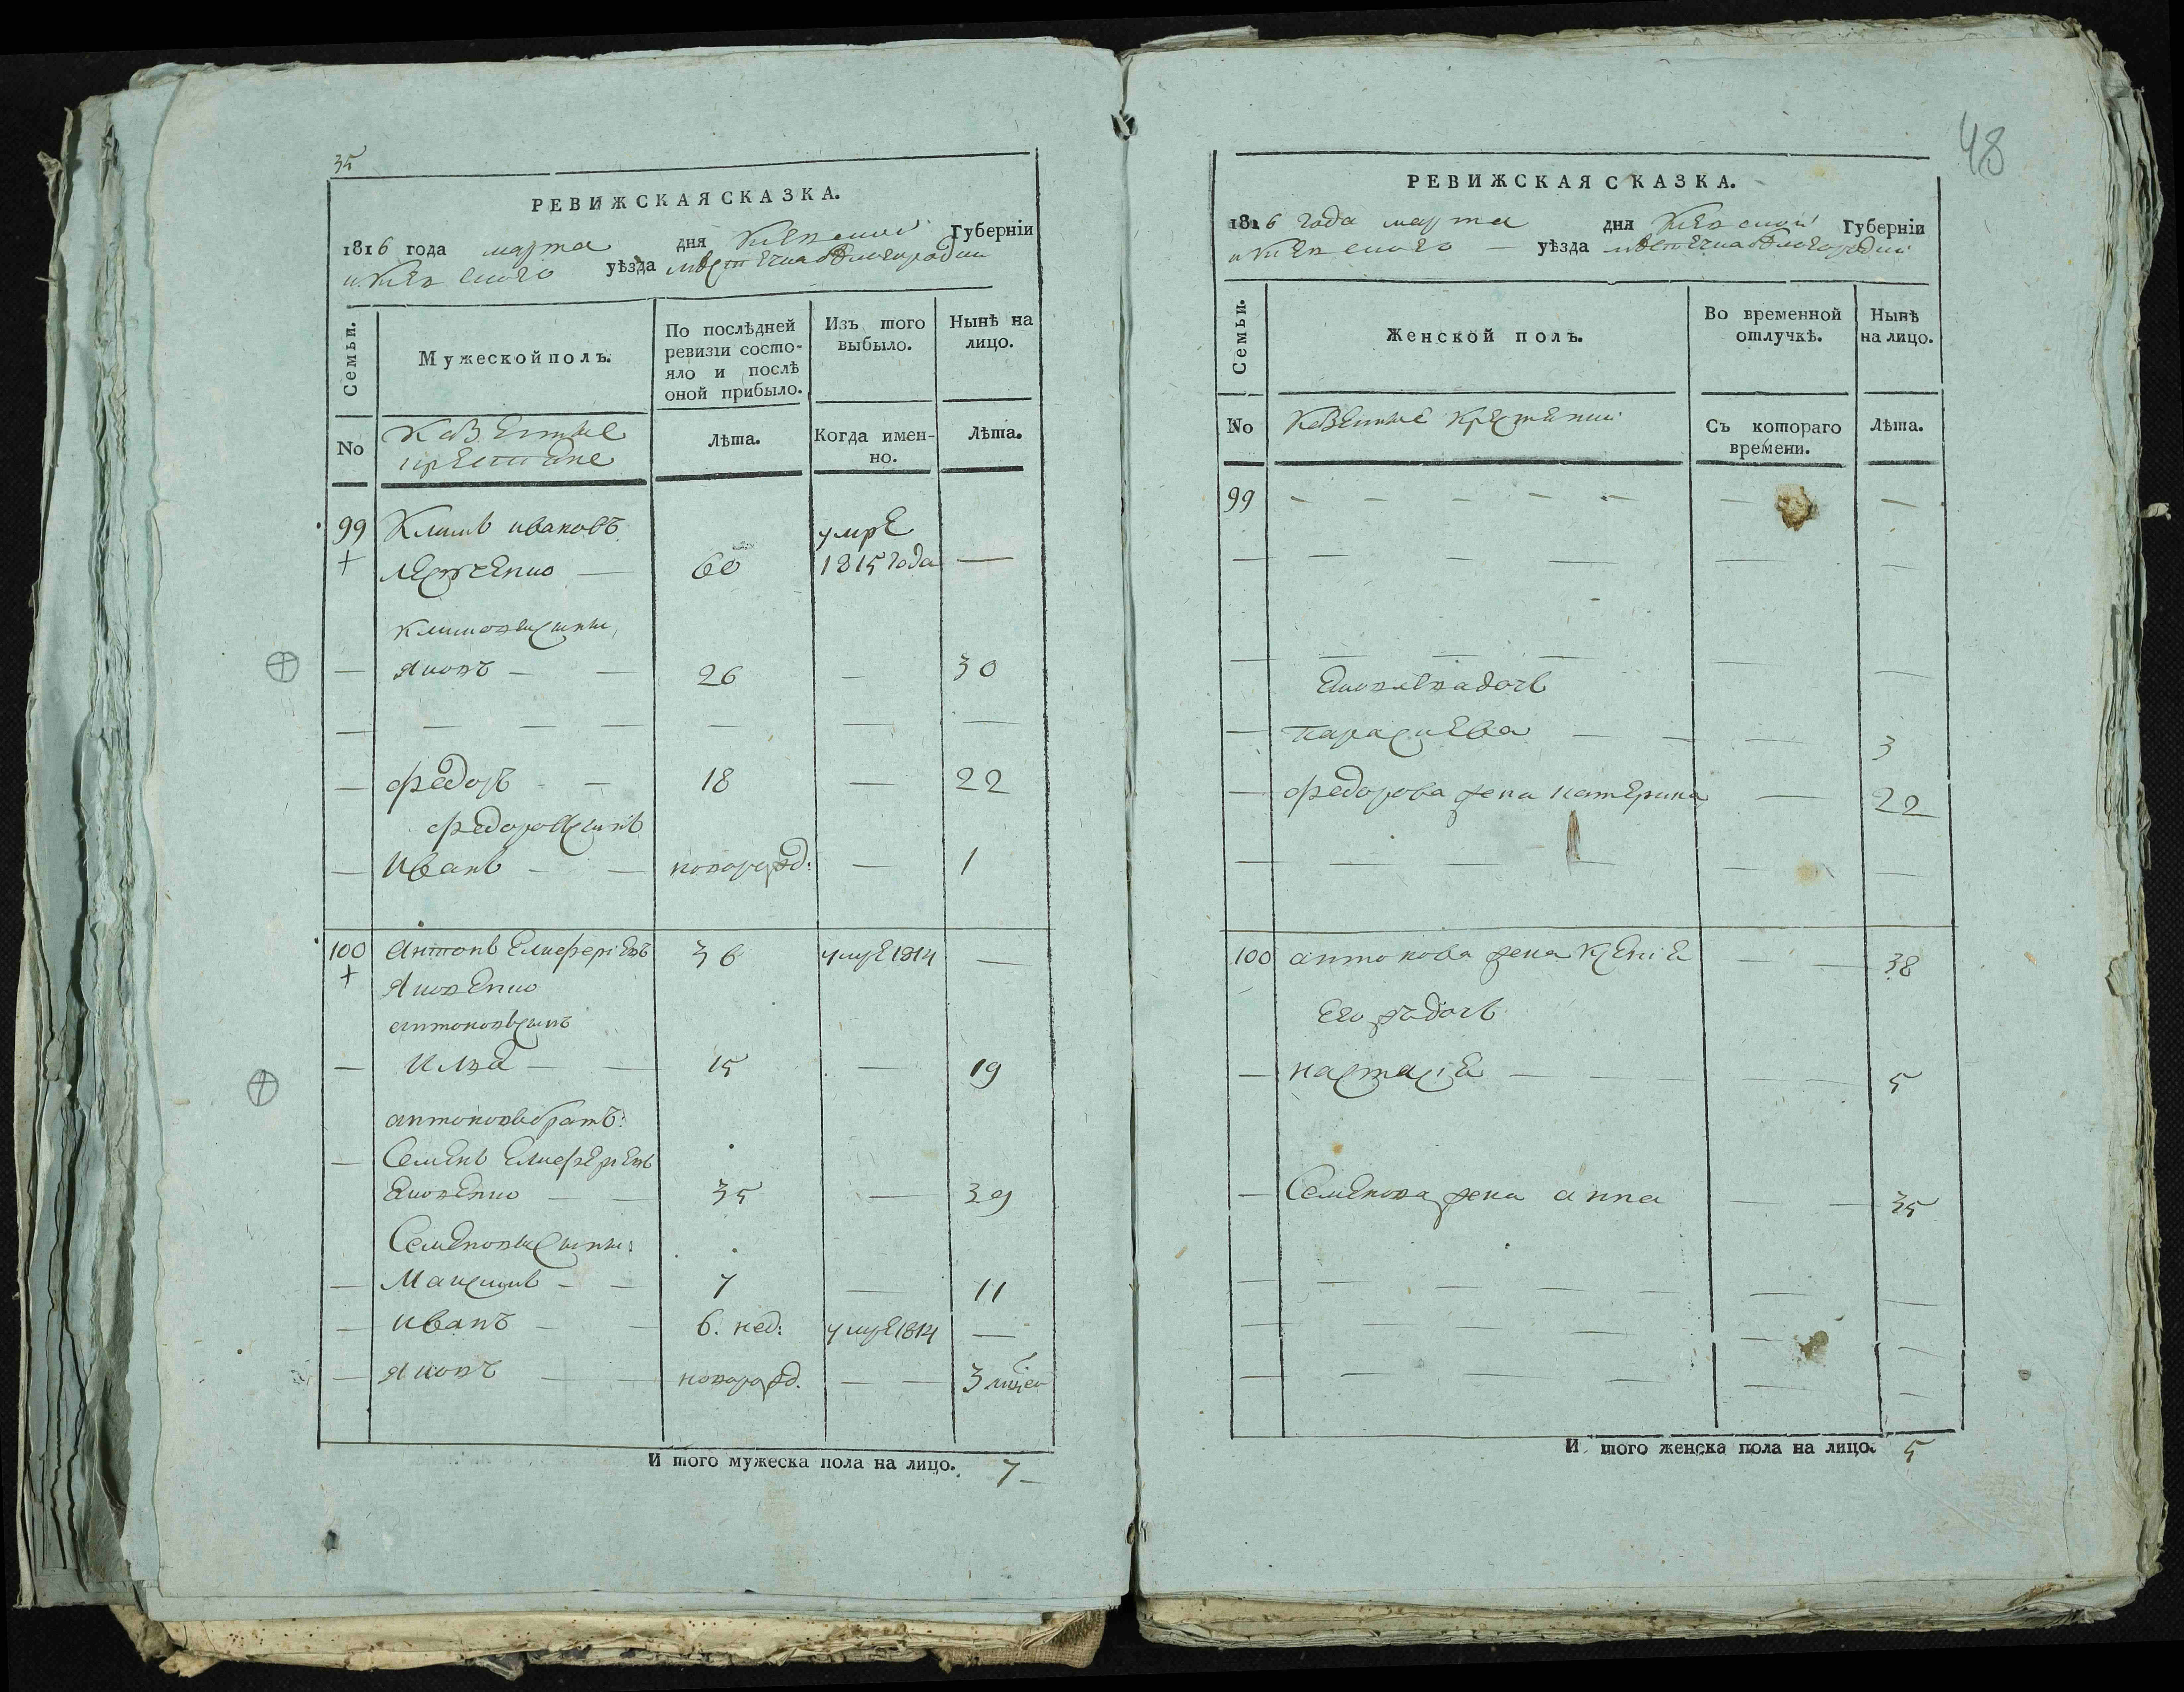 35
РЕВИЖСКАЯ СКАЗКА.
1816 года марта дня Киевской Губерніи
и Киевского уѣзда мѣстечка бѣлогородки
Семьи.
Мужеской полъ.
По послѣдней ревизіи состояло и послѣ оной прибыло.
Изъ того выбыло.
Нынѣ на лицо.
No
Казенные
крестяне
Лѣта.
Когда именно.
Лѣта.
99 Климъ ивановъ умре
+ 60 1815 года —
климовы сыны
— Яковъ — — 26 — 30
— — — — — — —
— федоръ — — 18 — 22
федоровъ сынъ
— Иванъ — —новорожд: — 1
100 Антонъ Елисеріевъ 36 умре 1814 —
+ Яковенко
антоновъ сынъ
— Илья — — 15 — 19
антоновъ братъ:
— Семенъ Елисеріевъ
Яковенко — — 35 — 39
Семеновы сыны:
— Максимъ — — 7 — 11
— иванъ — — 6. нед: умре 1814 —
— Яковъ — — новорожд. — — 3 мѣсец
И того мужеска пола на лицо. 7 —
48
РЕВИЖСКАЯ СКАЗКА.
1816 года марта дня Киевской Губерніи
и Киевского — уѣзда мѣстечка бѣлогородки
Семьи.
Женской полъ.
Во временной отлучкѣ.
Нынѣ на лицо.
No
Казенные крестянки
Съ котораго времени.
Лѣта.
99 — — — — — — —
— — — — — —
— — — — — —
Яковлева дочь
— параскева — — — 3
— федорова жена катерина — 22
— — — — — —
100 антонова жена Ксеніа — — 38
Его ж дочь
— настасіа — — — — — 5
— Семенова жена анна — — 35
— — — — — — —
— — — — — — —
— — — — — — —
И того женска пола на лицо. 5